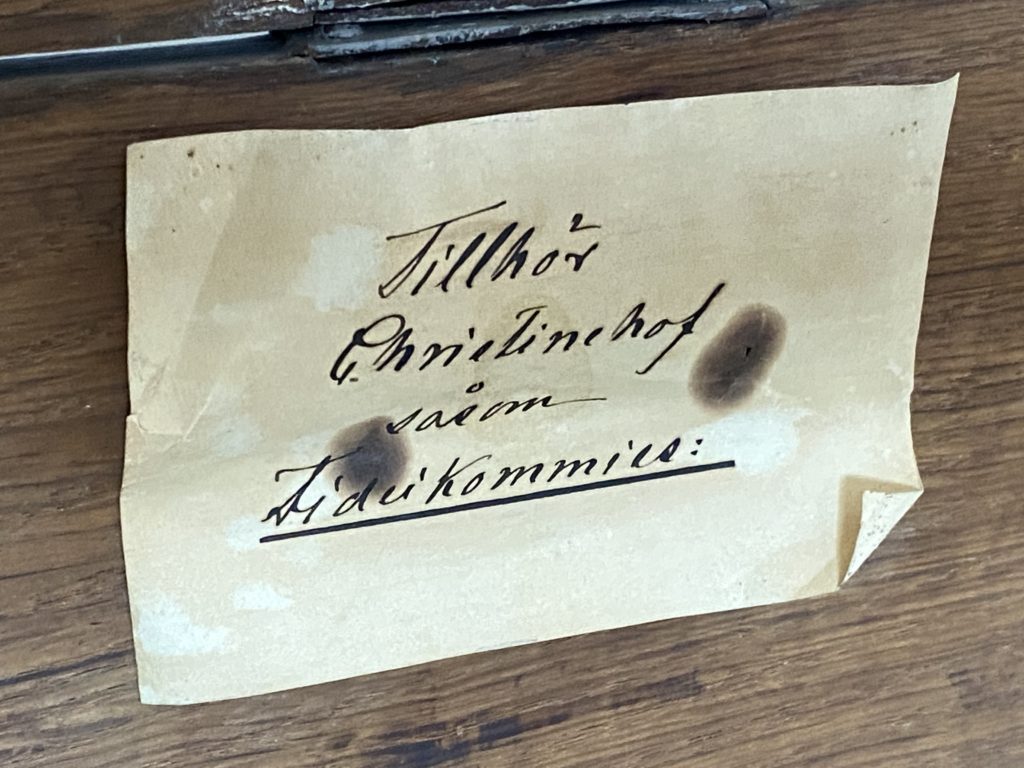 Tillhör
Christinehof
såsom
Fideikommiss: